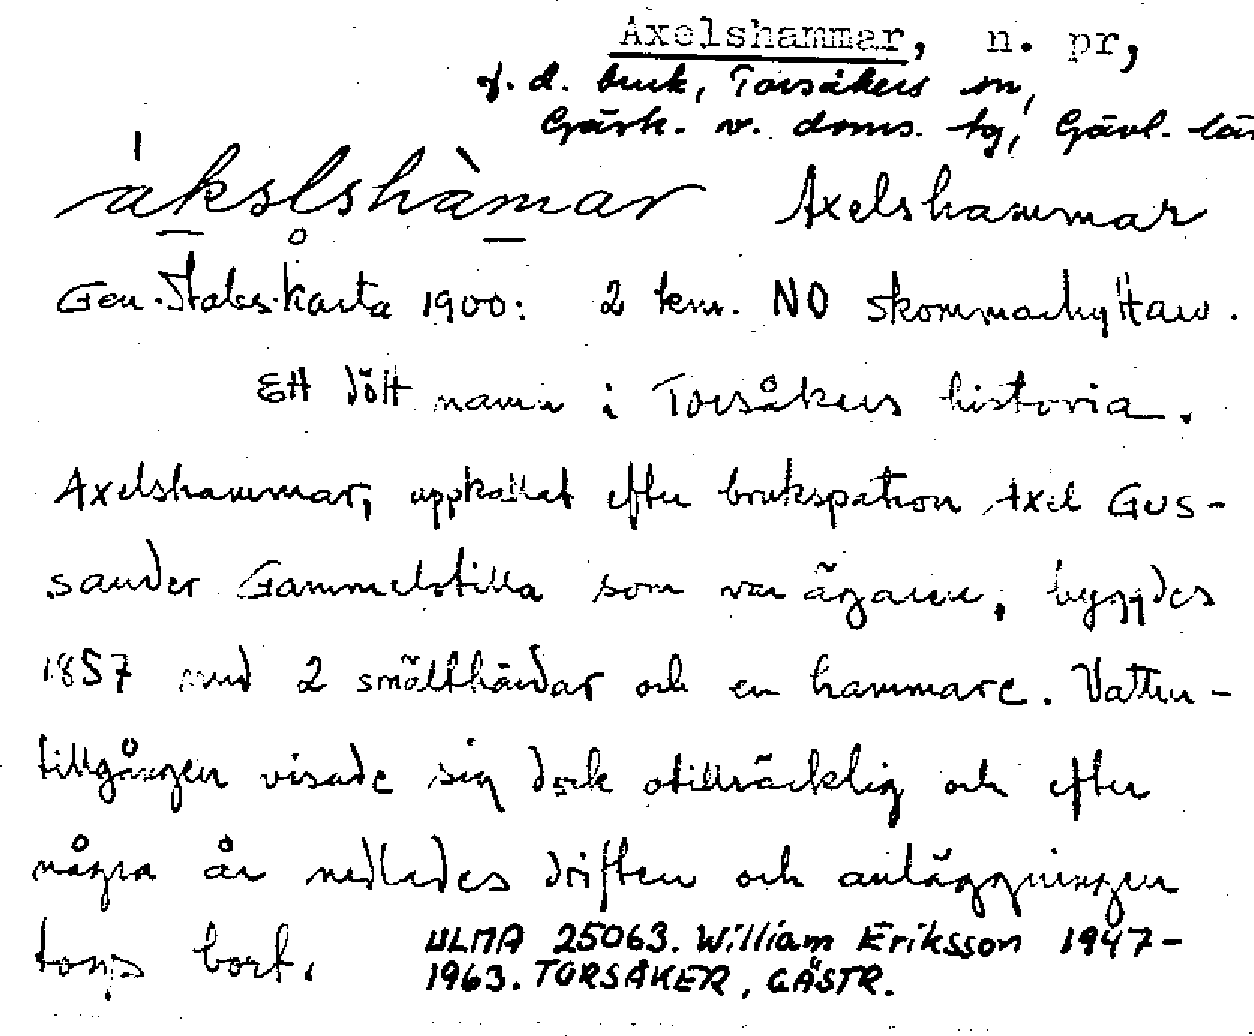 Axelshammar, n. pr,
f. d. bruk, Torsåkers sn,
Gästr. v. doms. tg, Gävl. län
ákslshàmar Axelshammar
Gen. Stabs. karta 1900: 2 km. NO Skommarhyttan.
Ett dött namn i Torsåkers historia.
Axelshammar, uppkallat efter brukspatron Axel Gus-
sander Gammelstilla som var ägaren, byggdes
1857 med 2 smälthärdar och en hammare. Vatten-
tillgången visade sig dock otillräcklig och efter
några år nedlades driften och anläggningen
togs bort.
ULMA 25063. William Eriksson 1947-
1963. TORSÅKER, GÄSTR.